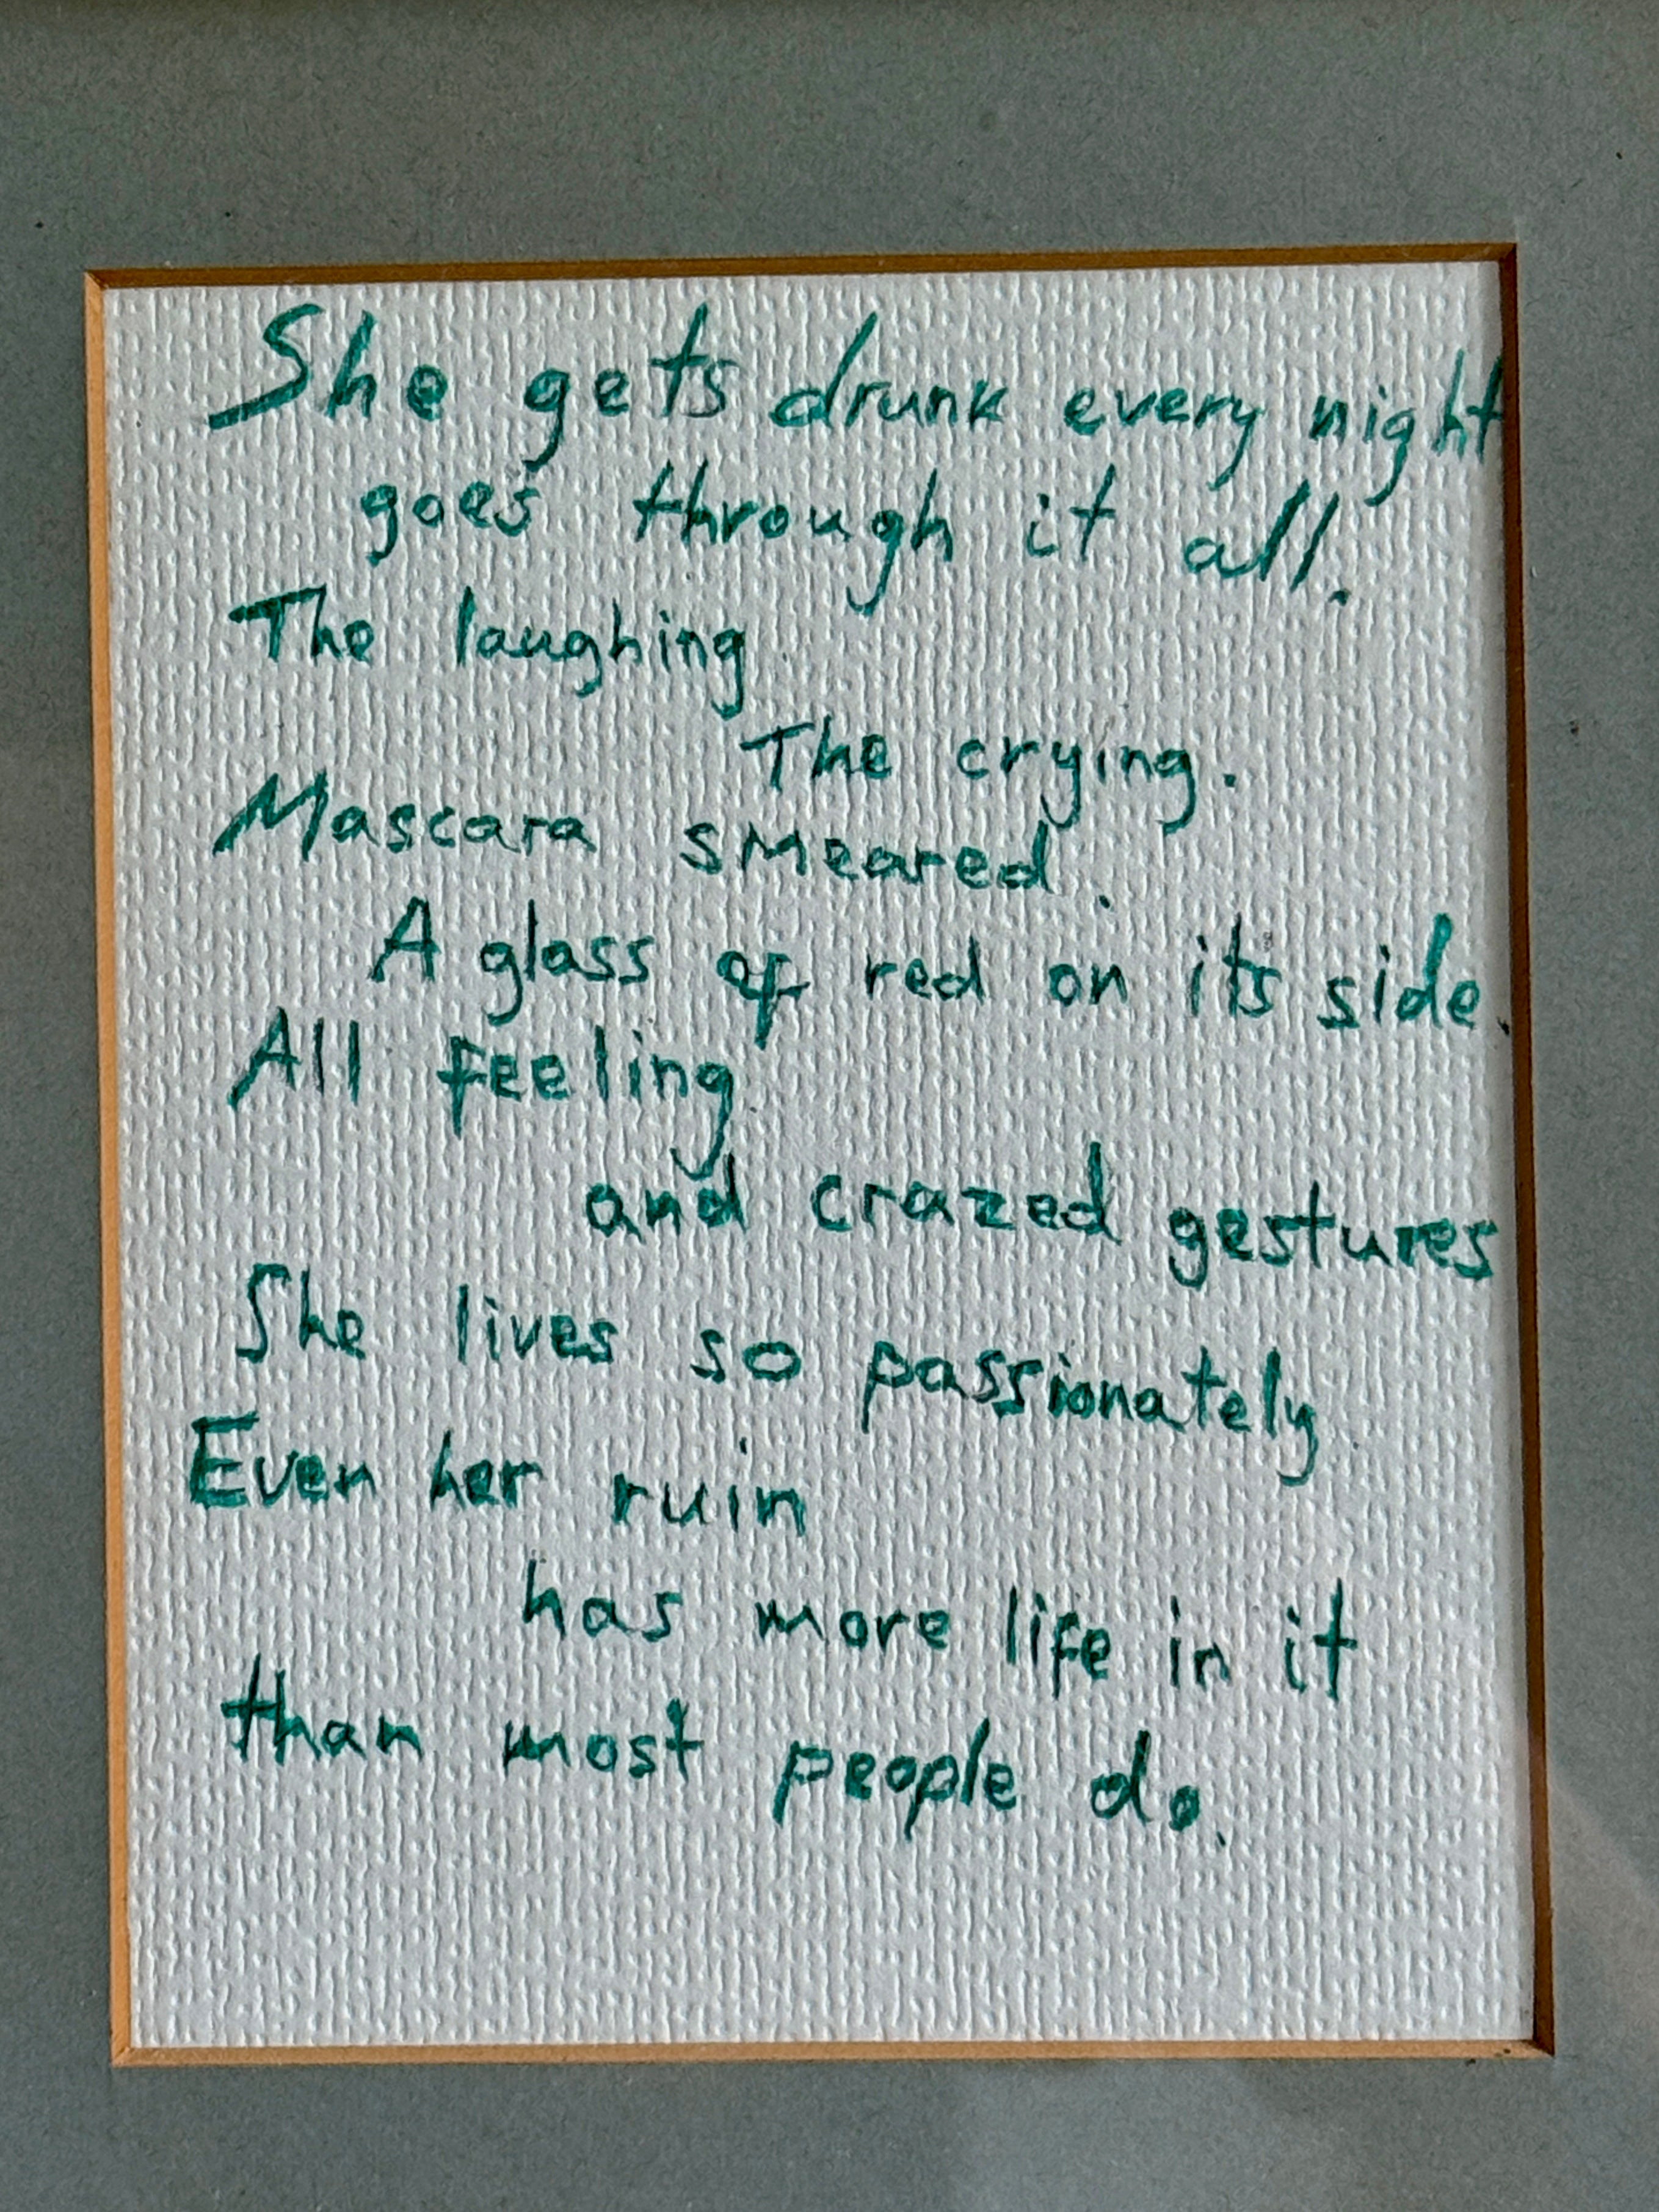 She gets drunk every night
goes through it all.
The laughing
The crying.
Mascara smeared.
A glass of red on its side.
All feeling
and crazed gestures
She lives so passionately
Even her ruin
has more life in it
than most people do.